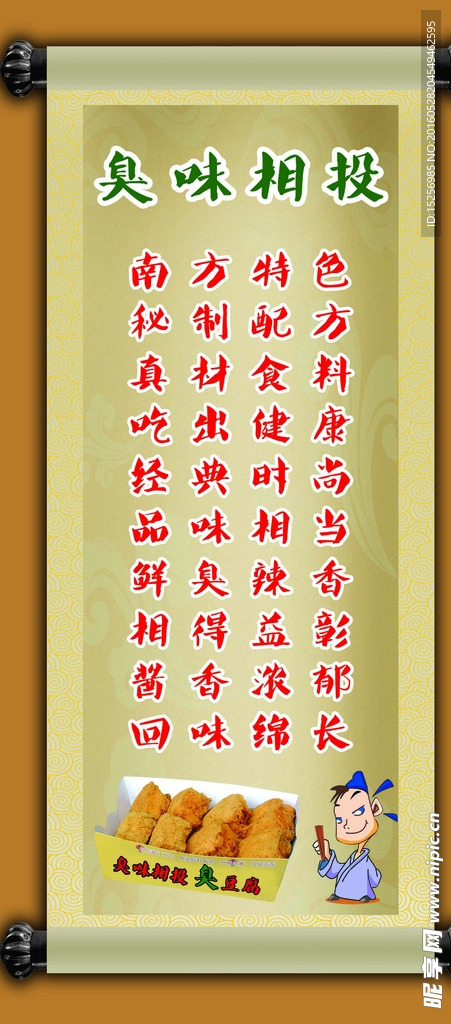 臭味相投
南方特色
秘制配方
真材食料
吃出健康
经典时尚
品味相当
鲜臭辣香
相得益彰
酱香浓郁
回味绵长
臭味相投 臭豆腐
ID:15256985 NO:20160528204549462595
昵享网 www.nipic.cn